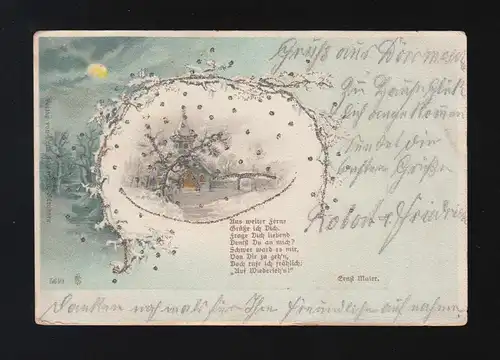 Gruß aus
Zu Hause glük
lich angekommen
sendet die
besten Grüße
Robert Friedrich
Aus weiter Ferne
Grüße ich Dich.
Frage Dich liebend
Denkst Du an mich?
Schwer ward es mir,
Von Dir zu geh'n,
Doch rufe ich fröhlich:
„Auf Wiederseh'n!"
Ernst Maier.
5610
Danken nochmals für Ihre freundliche aufnahme.